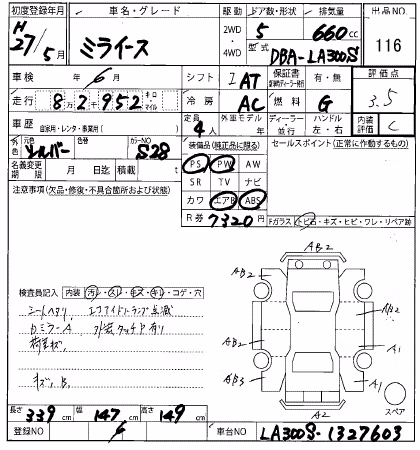 初度登録年月 車名・グレード 駆動 ドア数・形状 排気量 出品NO
H27/5月 ミライース 2WD・4WD 5 660cc 116
型式 DBA-LA300S
車検 年 月 シフト I AT 保証書 有・無 評価点
走行 8万2千952 キロ・マイル 冷房 AC 燃料 G 3.5
車歴 自家用・レンタ・事業用( ) 定員 4人 外車モデル 年 ディーラー 並行 ハンドル 左・右 内装評価 C
元色 シルバー 色替 カラーNO S28 装備品(純正品に限る) セールスポイント(正常に作動するもの)
名義変更期限 月 日迄 積載 t PS PW AW
注意事項(欠品・修復・不具合箇所および状態) SR TV ナビ
カワ エアB ABS
R券 7320円 Fガラス トビ石・キズ・ヒビ・ワレ・リペア跡
検査員記入 内装 汚レ・スレ・キズ・キレ・コゲ・穴
シートヘタリ エコアイドルランプ点滅
ミラーA 外装タッチアリ
荷室キズ
キズ、B
AB2
AB2 AB2
AB2 A1
AB3 A1
A2
スペア
長さ 339cm 幅 147cm 高さ 149cm
登録NO 車台NO LA300S-1327603